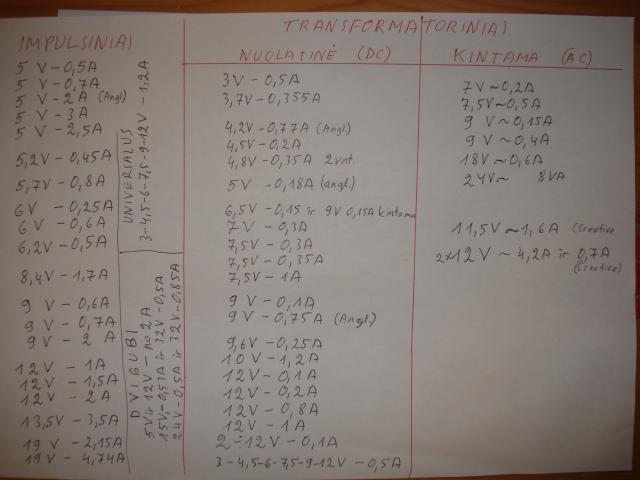 TRANSFORMATORINIAI
IMPULSINIAI
5 V - 0,5A
5 V - 0,7A
5 V - 2A (Angl)
5 V - 3A
5 V - 2,5A
5,2V - 0,45A
5,7V - 0,8A
6V - 0,25A
6V - 0,6A
6,2V - 0,5A
8,4V - 1,7A
9 V - 0,6A
9 V - 0,7A
9V - 2 A
12 V - 1A
12V - 1,5A
12V - 2A
13,5V - 3,5A
19 V - 2,15A
19V - 4,74A
UNIVERSALUS
3-4,5-6-7,5-9-12V - 1,2A
DVIGUBI
5V ir 12V - po 2A
15V - 0,53A ir 32V - 0,5A
24V - 0,5A ir 32V - 0,85A
NUOLATINĖ (DC)
3V - 0,5A
3,7V - 0,355A
4,2V - 0,77A (Angl.)
4,5V - 0,2A
4,8V - 0,35A 2vnt.
5V - 0,18A (angl.)
6,5V - 0,15 ir 9V 0,15A kintama
7V - 0,3A
7,5V - 0,3A
7,5V - 0,35A
7,5V - 1A
9V - 0,1A
9V - 0,75A (Angl.)
9,6V - 0,25A
10V - 1,2A
12V - 0,1A
12V - 0,2A
12V - 0,8A
12V - 1A
2÷12V - 0,1A
3-4,5-6-7,5-9-12V - 0,5A
KINTAMA (AC)
7V ~ 0,2A
7,5V ~ 0,5A
9 V ~ 0,15A
9 V ~ 0,4A
18V ~ 0,6A
24V ~ 8VA
11,5V ~ 1,6A (Creative
2x12V ~ 4,2A ir 0,7A
(Creative)